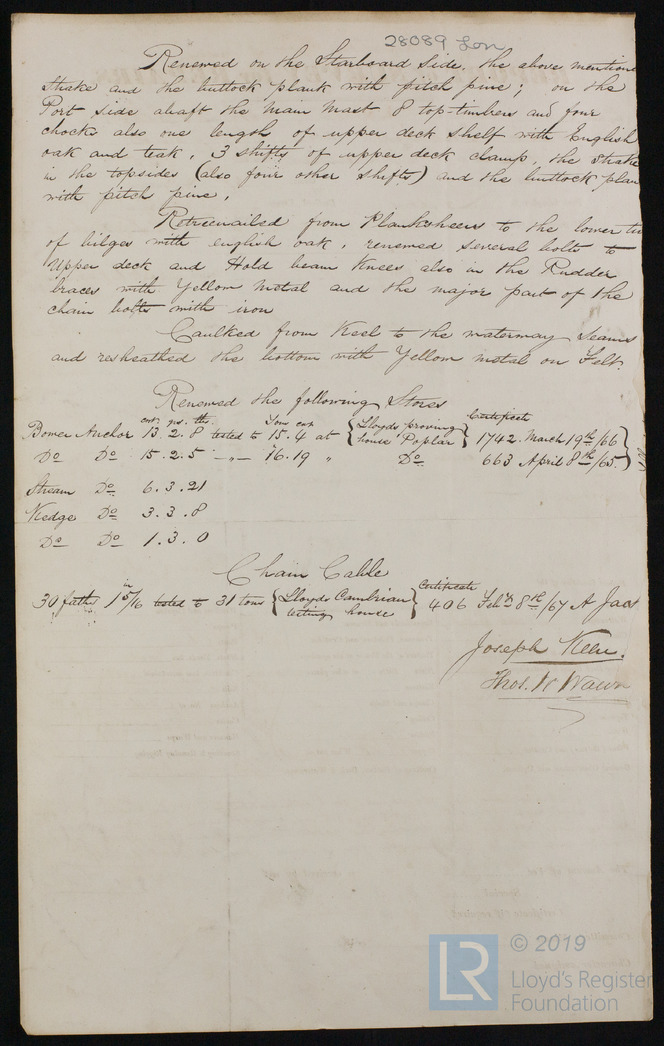 28089 Lon
Renewed on the Starboard side, the above mentione
strake and the buttock plank with pitch pine; on the
Port side abaft the Main Mast 8 top-timbers and four
chocks also one length of upper deck shelf with English
oak and teak, 3 shifts of upper deck clamp, the strake
in the topsides (also four other shifts) and the buttock plan
with pitch pine.
Retreenailed from Planksheers to the lower tu
of bilges with english oak, renewed several bolts to
Upper deck and Hold beam Knees also in the Rudder
braces with Yellow Metal and the major part of the
chain bolts with iron
Caulked from Keel to the waterway seams
and resheathed the bottom with Yellow metal on Felt
Renewed the following Stores
cwt. qrs. lbs. Tons cwt Certificate
Bower Anchor 13.2.8 tested to 15.4 at {Lloyds proving house Poplar} 1742. March 19th/66
Do Do 15.2.5 — „ — 16.19 „ Do 663 April 8th/65
Stream Do 6.3.21
Kedge Do 3.3.8
Do Do 1.3.0
Chain Cable
30 faths 1 5/16 in tested to 31 tons {Lloyds Cambrian testing house} Certificate 406 Feby 8th/67 A Jact
Joseph Keen.
Thos. W Wawn
LR © 2019
Lloyd's Register
Foundation